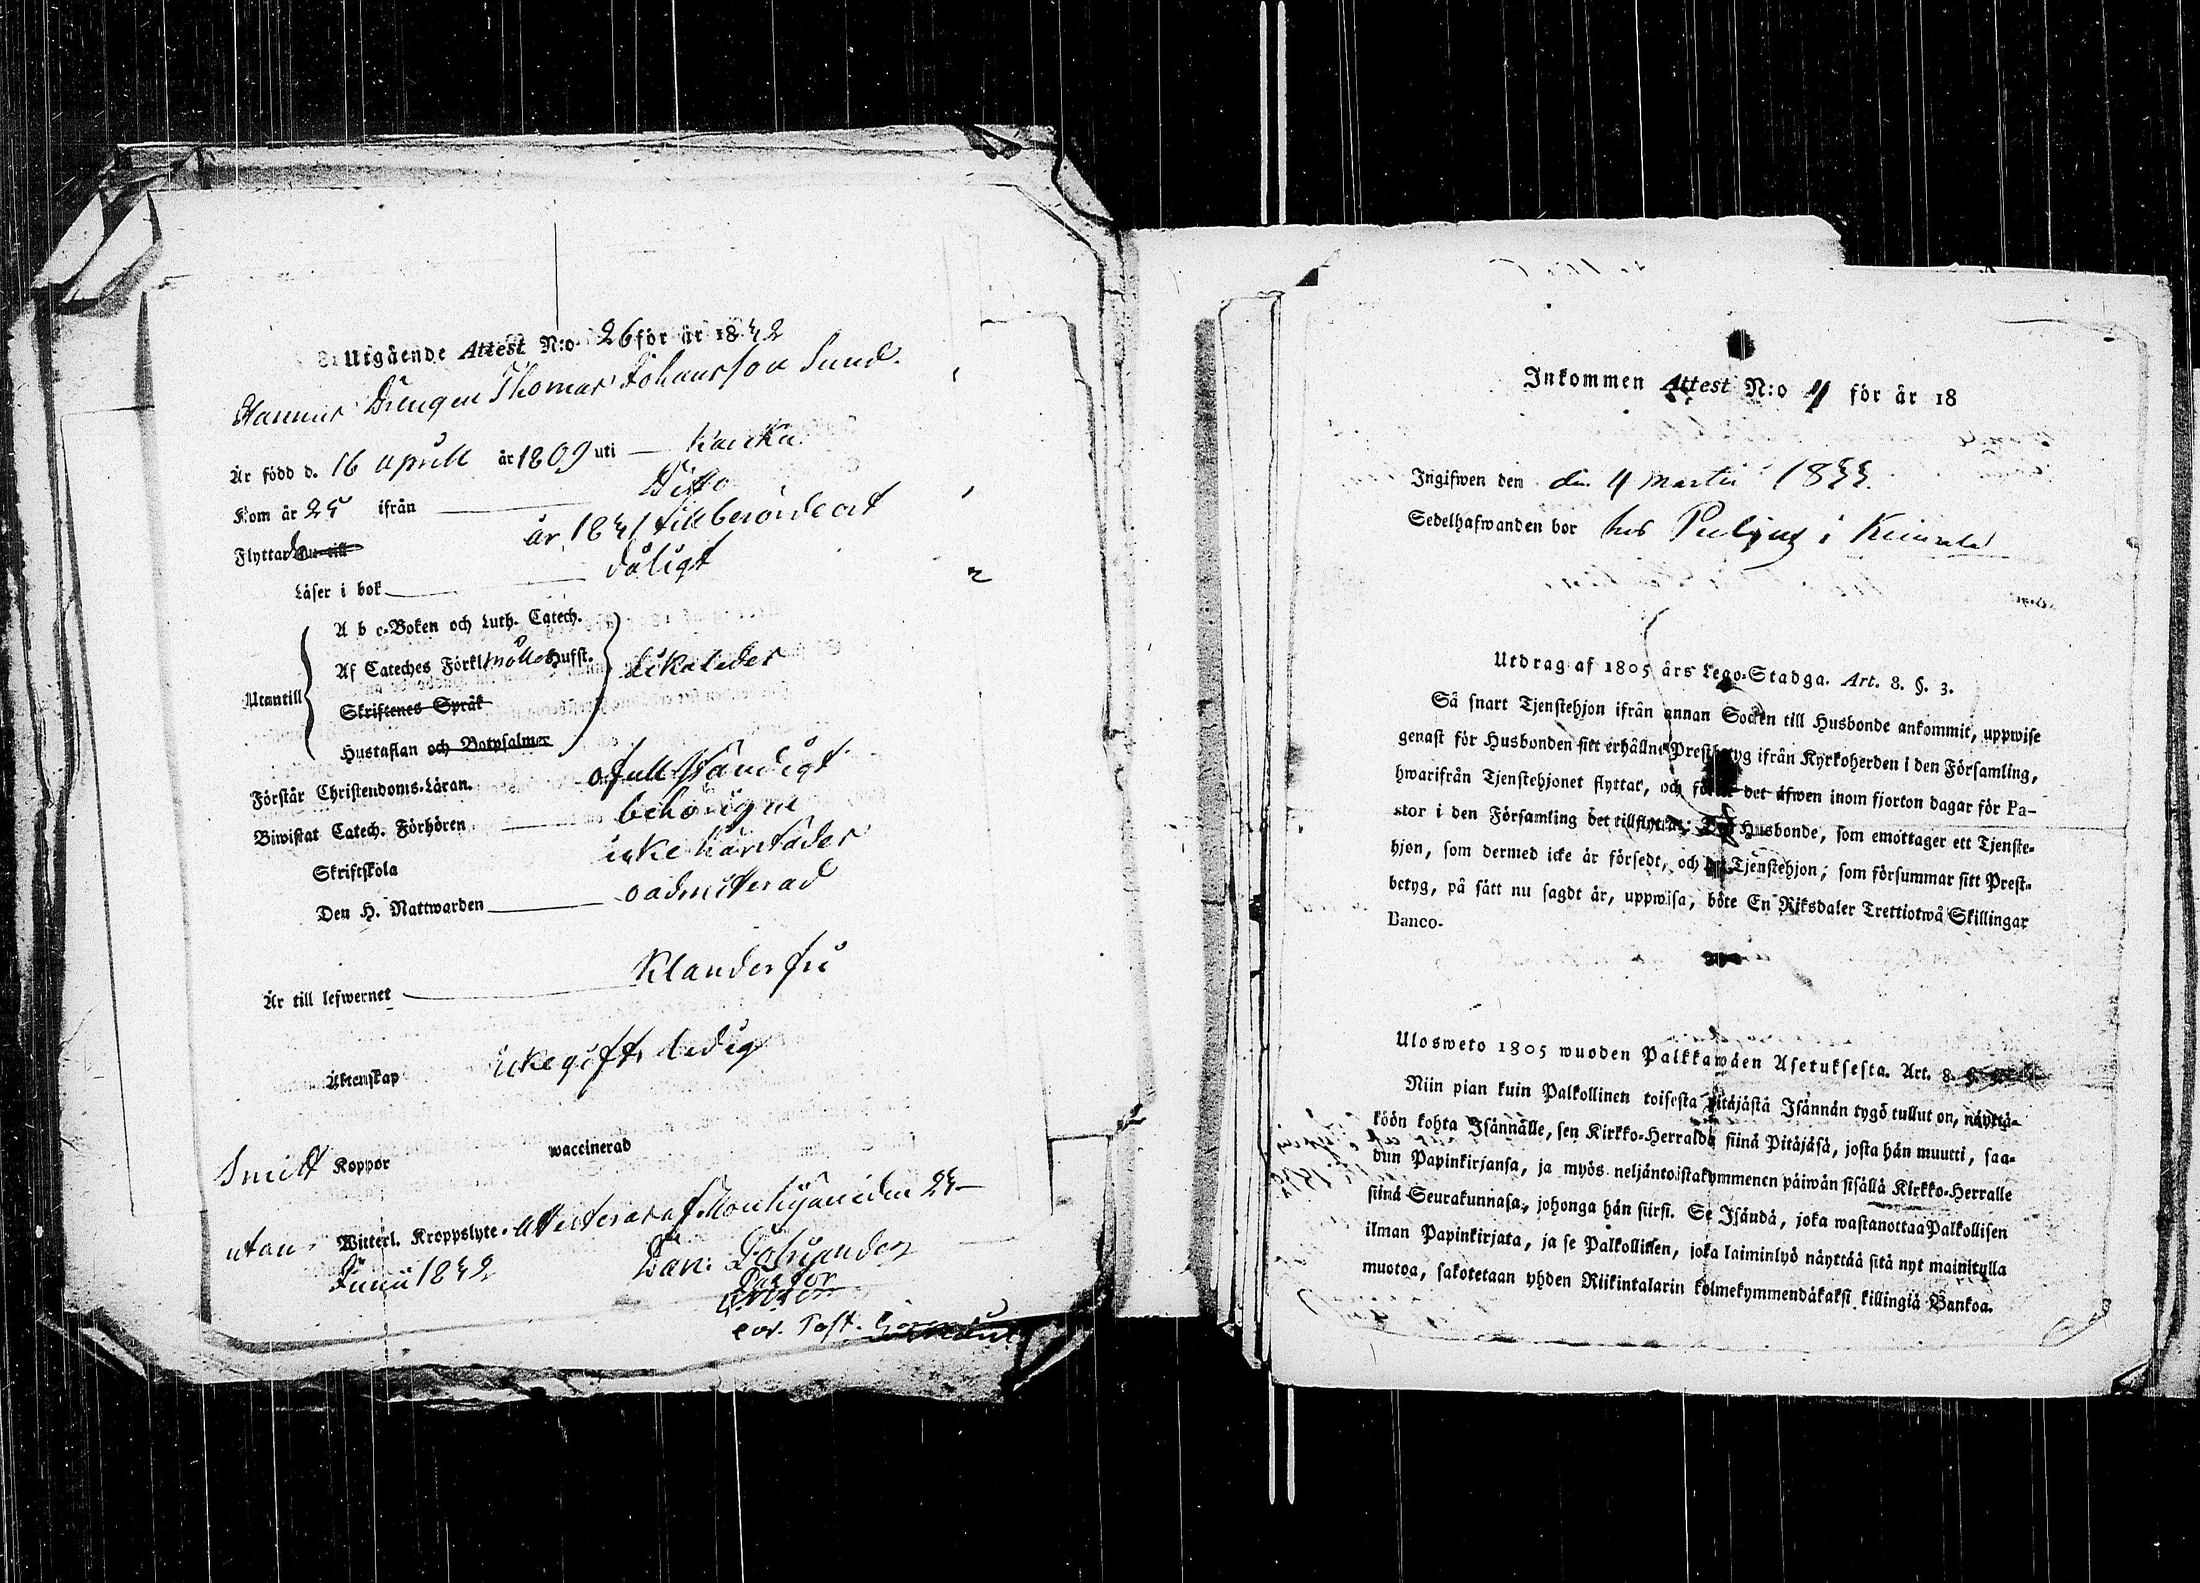 Utgående Attest N:o 26 för år 1832
Drengen Thomas Johansson Sund.
Är född d. 16 april år 1809 uti
Kom år 25 ifrån Ditto
Flyttar nu till år 1831 till berörde ort
Läser i bok dåligt
A b c-Boken och Luth. Catech.
Af Cateches Förkl. Hufst.
Utantill likaledes
Skriftenes Språk
Hustaflan och Botpsalmer
Förstår Christendoms-Läran. ofullständigt
Biwistat Catech. Förhören behörigen
Skriftskola icke härstädes
Den H. Nattwarden oadmitterad
Är till lefwernet Klanderfri
Äktenskap Icke gift, ledig
Koppor waccinerad
utan Witterl. Kroppslyte. Attesteras af den 23
Junii 1832
Pastor
Inkommen Attest N:o 4 för år 18
Ingifwen den din 4 martii 1833.
Sedelhafwanden bor hos i
Utdrag af 1805 års Lego-Stadga. Art. 8. §. 3.
Så snart Tjenstehjon ifrån annan Socken till Husbonde ankommit, uppwise
genast för Husbonden sitt erhållne Prestbetyg ifrån Kyrkoherden i den Församling,
hwarifrån Tjenstehjonet flyttar, och det äfwen inom fjorton dagar för Pa-
stor i den Församling det tillflyttar; Den Husbonde, som emottager ett Tjenste-
hjon, som dermed icke är försedt, och det Tjenstehjon; som försummar sitt Prest-
betyg, på sätt nu sagdt är, uppwisa, böte En Riksdaler Trettiotwå Skillingar
Banco.
Ulosweto 1805 wuoden Palkkawäen Asetuksesta. Art. 8.
Niin pian kuin Palkollinen toisesta pitäjästä Isännän tygö tullut on, näyttä-
köön kohta Isännälle, sen Kirkko-Herralda siinä Pitäjäsä, josta hän muutti, saa-
dun Papinkirjansa, ja myös neljäntoistakymmenen päiwän sisällä Kirkko-Herralle
siinä Seurakunnasa, johonga hän siirsi. Se Isändä, joka wastanottaa Palkollisen
ilman Papinkirjata, ja se Palkollinen, joka laiminlyö näyttää sitä nyt mainitulla
muotoa, sakotetaan yhden Riikintalarin kolmekymmendäkaksi killingiä Bankoa.